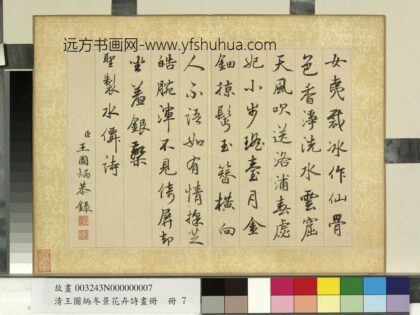 远方书画网-www.yfshuhua.com
女夷裁冰作仙骨
色香淨洗水雲窟
天風吹送洛浦虙
妃小步瑤臺月金
鈿掠鬢玉簪橫向
人不語如有情採芝
皓腕渾不見倚屏却
坐羞銀檠
聖製水僊詩
臣王圖炳恭錄
故畫 003243N000000007
清王圖炳冬景花卉詩畫冊 冊 7